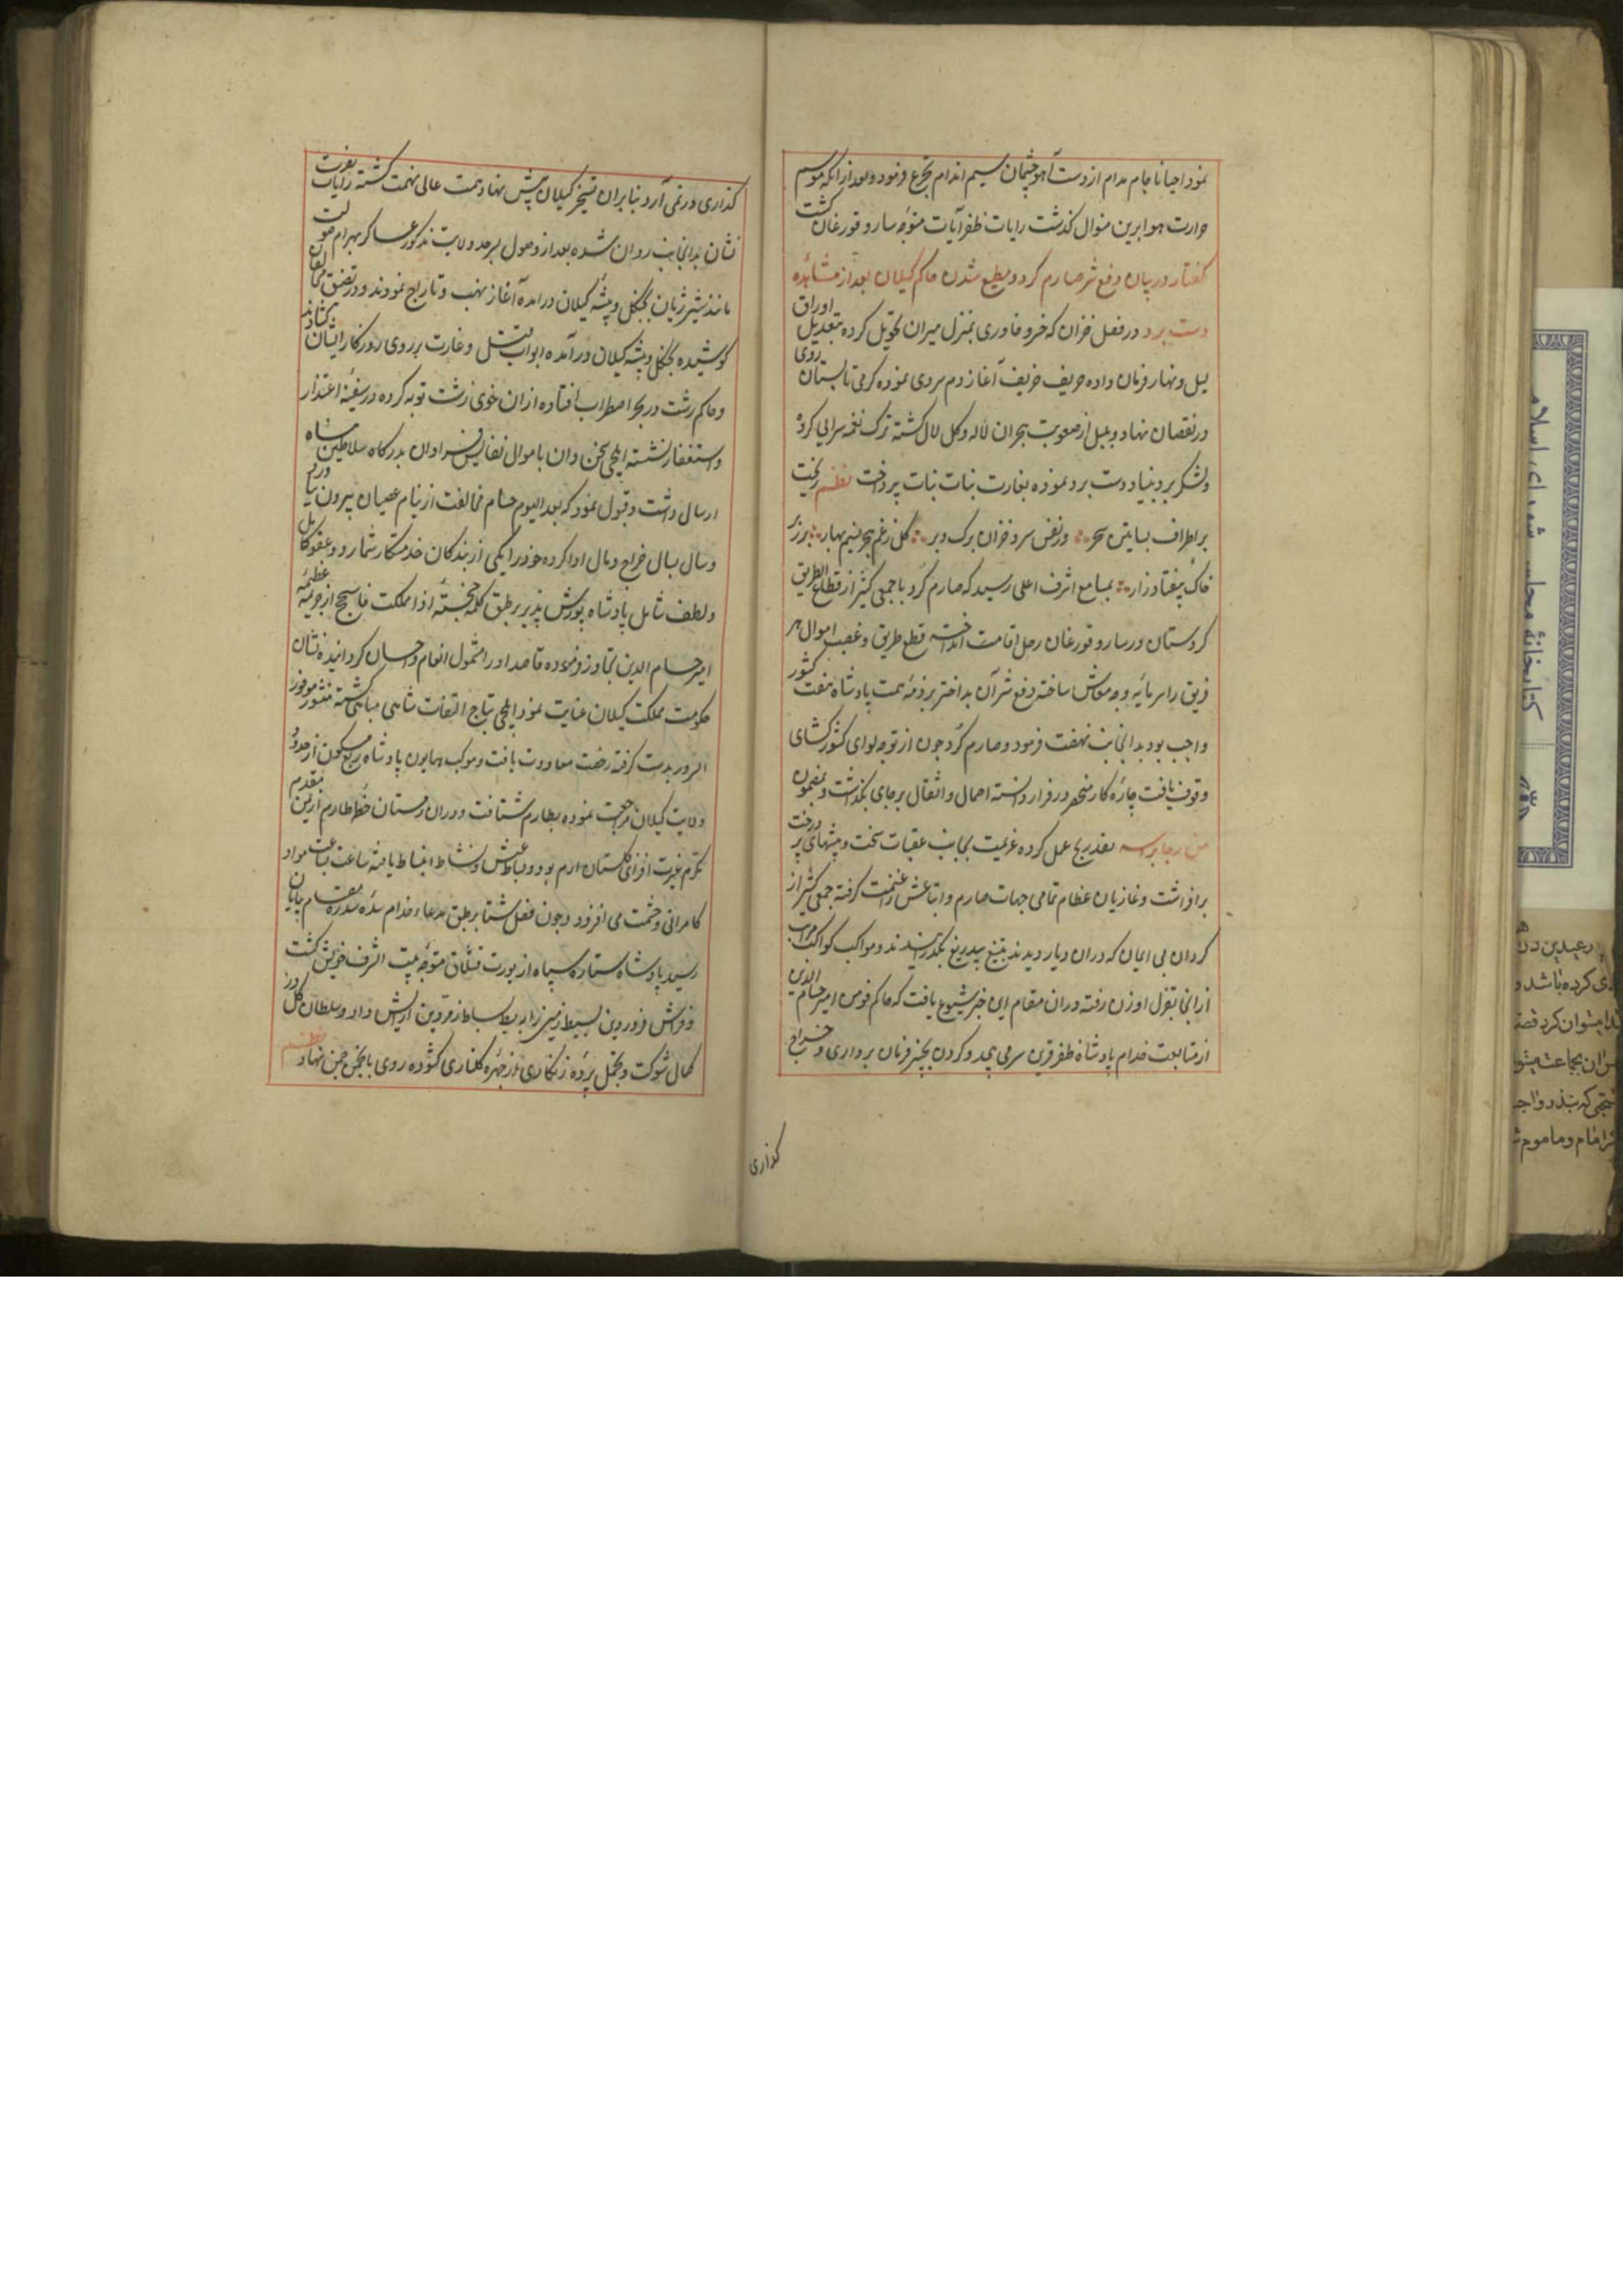 نمود احیانا جام مدام از دست آهوچشمان سیم اندام تجرع فرمود و بعد از انکه موسم
حرارت هوا برین منوال کذشت رایات ظفر آیات متوجه سارو قورغان کشت
کفتار در بیان دفع شر صارم کرد و مطیع شدن حاکم کیلان بعد از مشاهده
دست برد در فصل خزان که خسرو خاوری بمنزل میزان تحویل کرده بتعدیل اوراق
لیل و نهار فرمان داده حریف خریف آغاز دم سردی نموده کرمی تابستان روی
در نقصان نهاد و بلبل از صعوبت هجران لاله و کل لال کشته ترک نغمه سرایی کرد
و لشکر برد بنیاد دست برد نموده بغارت بنات نبات پرداخت نظم ریخت
بر اطراف بساتین سحر وز نفس سرد خزان برک و بر کل زغم هجر نسیم بهار بر زبر
خاک بیفتاد زار بمسامع اشرف اعلی رسید که صارم کرد با جمعی کثیر از قطاع الطریق
کردستان در سارو قورغان رحل اقامت انداخته قطع طریق و غصب اموال هر
فریق را سرمایه وجه معاش ساخته دفع شر آن بداختر بر ذمه همت پادشاه هفت کشور
واجب بود بدانجانب نهضت فرمود و صارم کرد چون از توجه لوای کشورکشای
وقوف یافت چاره کار منحصر در فرار دانسته احمال و اثقال بر جای بکذاشت و بمضمون
من نجا براسه فقد ربح عمل کرده عزیمت بجانب عقبات سخت و بیشهای پر درخت
برافراشت و غازیان عظام تمامی جهات صارم و اتباعش را غنیمت کرفته جمعی کثیر از
کردان بی ایمان که در ان دیار دیدند بتیغ بیدریغ بکذرانیدند و مواکب کواکب مراتب
از انجا بقزل اوزن رفته در ان مقام این خبر شیوع یافت که حاکم فومن امیر حسام الدین
از متابعت خدام پادشاه ظفر قرین سر می پیچد و کردن بچنبر فرمان برداری و خراج
کذاری
کذاری در نمی آرد بنابران تسخیر کیلان پیش نهاد همت عالی نهمت کشته رایات نصرت
نشان بدانجانب روان شده بعد از وصول بسرحد ولایت مذکور عساکر بهرام صولت
مانند شیر ژیان بجنکل و بیشه کیلان درامده آغاز نهب و تاراج نمودند و در تضییق مخالفان
کوشیده بجنکل و بیشه کیلان درآمده ابواب قتل و غارت بر روی روزکار ایشان بکشادند
و حاکم رشت در بحر اضطراب افتاده از ان خوی زشت توبه کرده در سفینه اعتذار
و استغفار نشسته ایلچی سخن دان با موال نفایس فراوان بدرکاه سلاطین پناه
ارسال داشت و قبول نمود که بعد الیوم حسام مخالفت از نیام عصیان بیرون نیاورد
و سال بسال خراج و مال ادا کرده خود را یکی از بندکان خدمتکار شمارد و عفو کامل
و لطف شامل پادشاه پوزش پذیر بر طبق کلمه خجسته اذا ملکت فاسجح از جریمه عظیمه
امیر حسام الدین تجاوز فرموده قاصد او را مشمول انعام و احسان کردانیده نشان
حکومت مملکت کیلان عنایت نمود ایلچی بتاج التفات شاهی مباهی کشته منشور موفور
السرور بدست کرفته رخصت معاودت یافت و موکب همایون پادشاه ربع مسکون از حدود
ولایت کیلان مراجعت نموده بطارم شتافت و در ان زمستان خطه طارم از یمن مقدم
مکرم غیرت افزای کلستان ارم بود و بساط عیش و نشاط انبساط یافته ساعت بساعت مواد
کامرانی و حشمت می افزود و چون فصل شتا بر طبق مدعاء خدام سده سدره مقام بپایان
رسید پادشاه ستاره سپاه از یورت قشلاق متوجه بیت الشرف خویش کشت
و فراش فروردین بسیط زمین را به بسط بساط زمردین آرایش داد و سلطان کل در
کمال شوکت و تجمل پرده زنکاری از چهره کلناری کشوده روی بانجمن چمن نهاد نظم
کتابخانهٔ مجلس شورای اسلامی